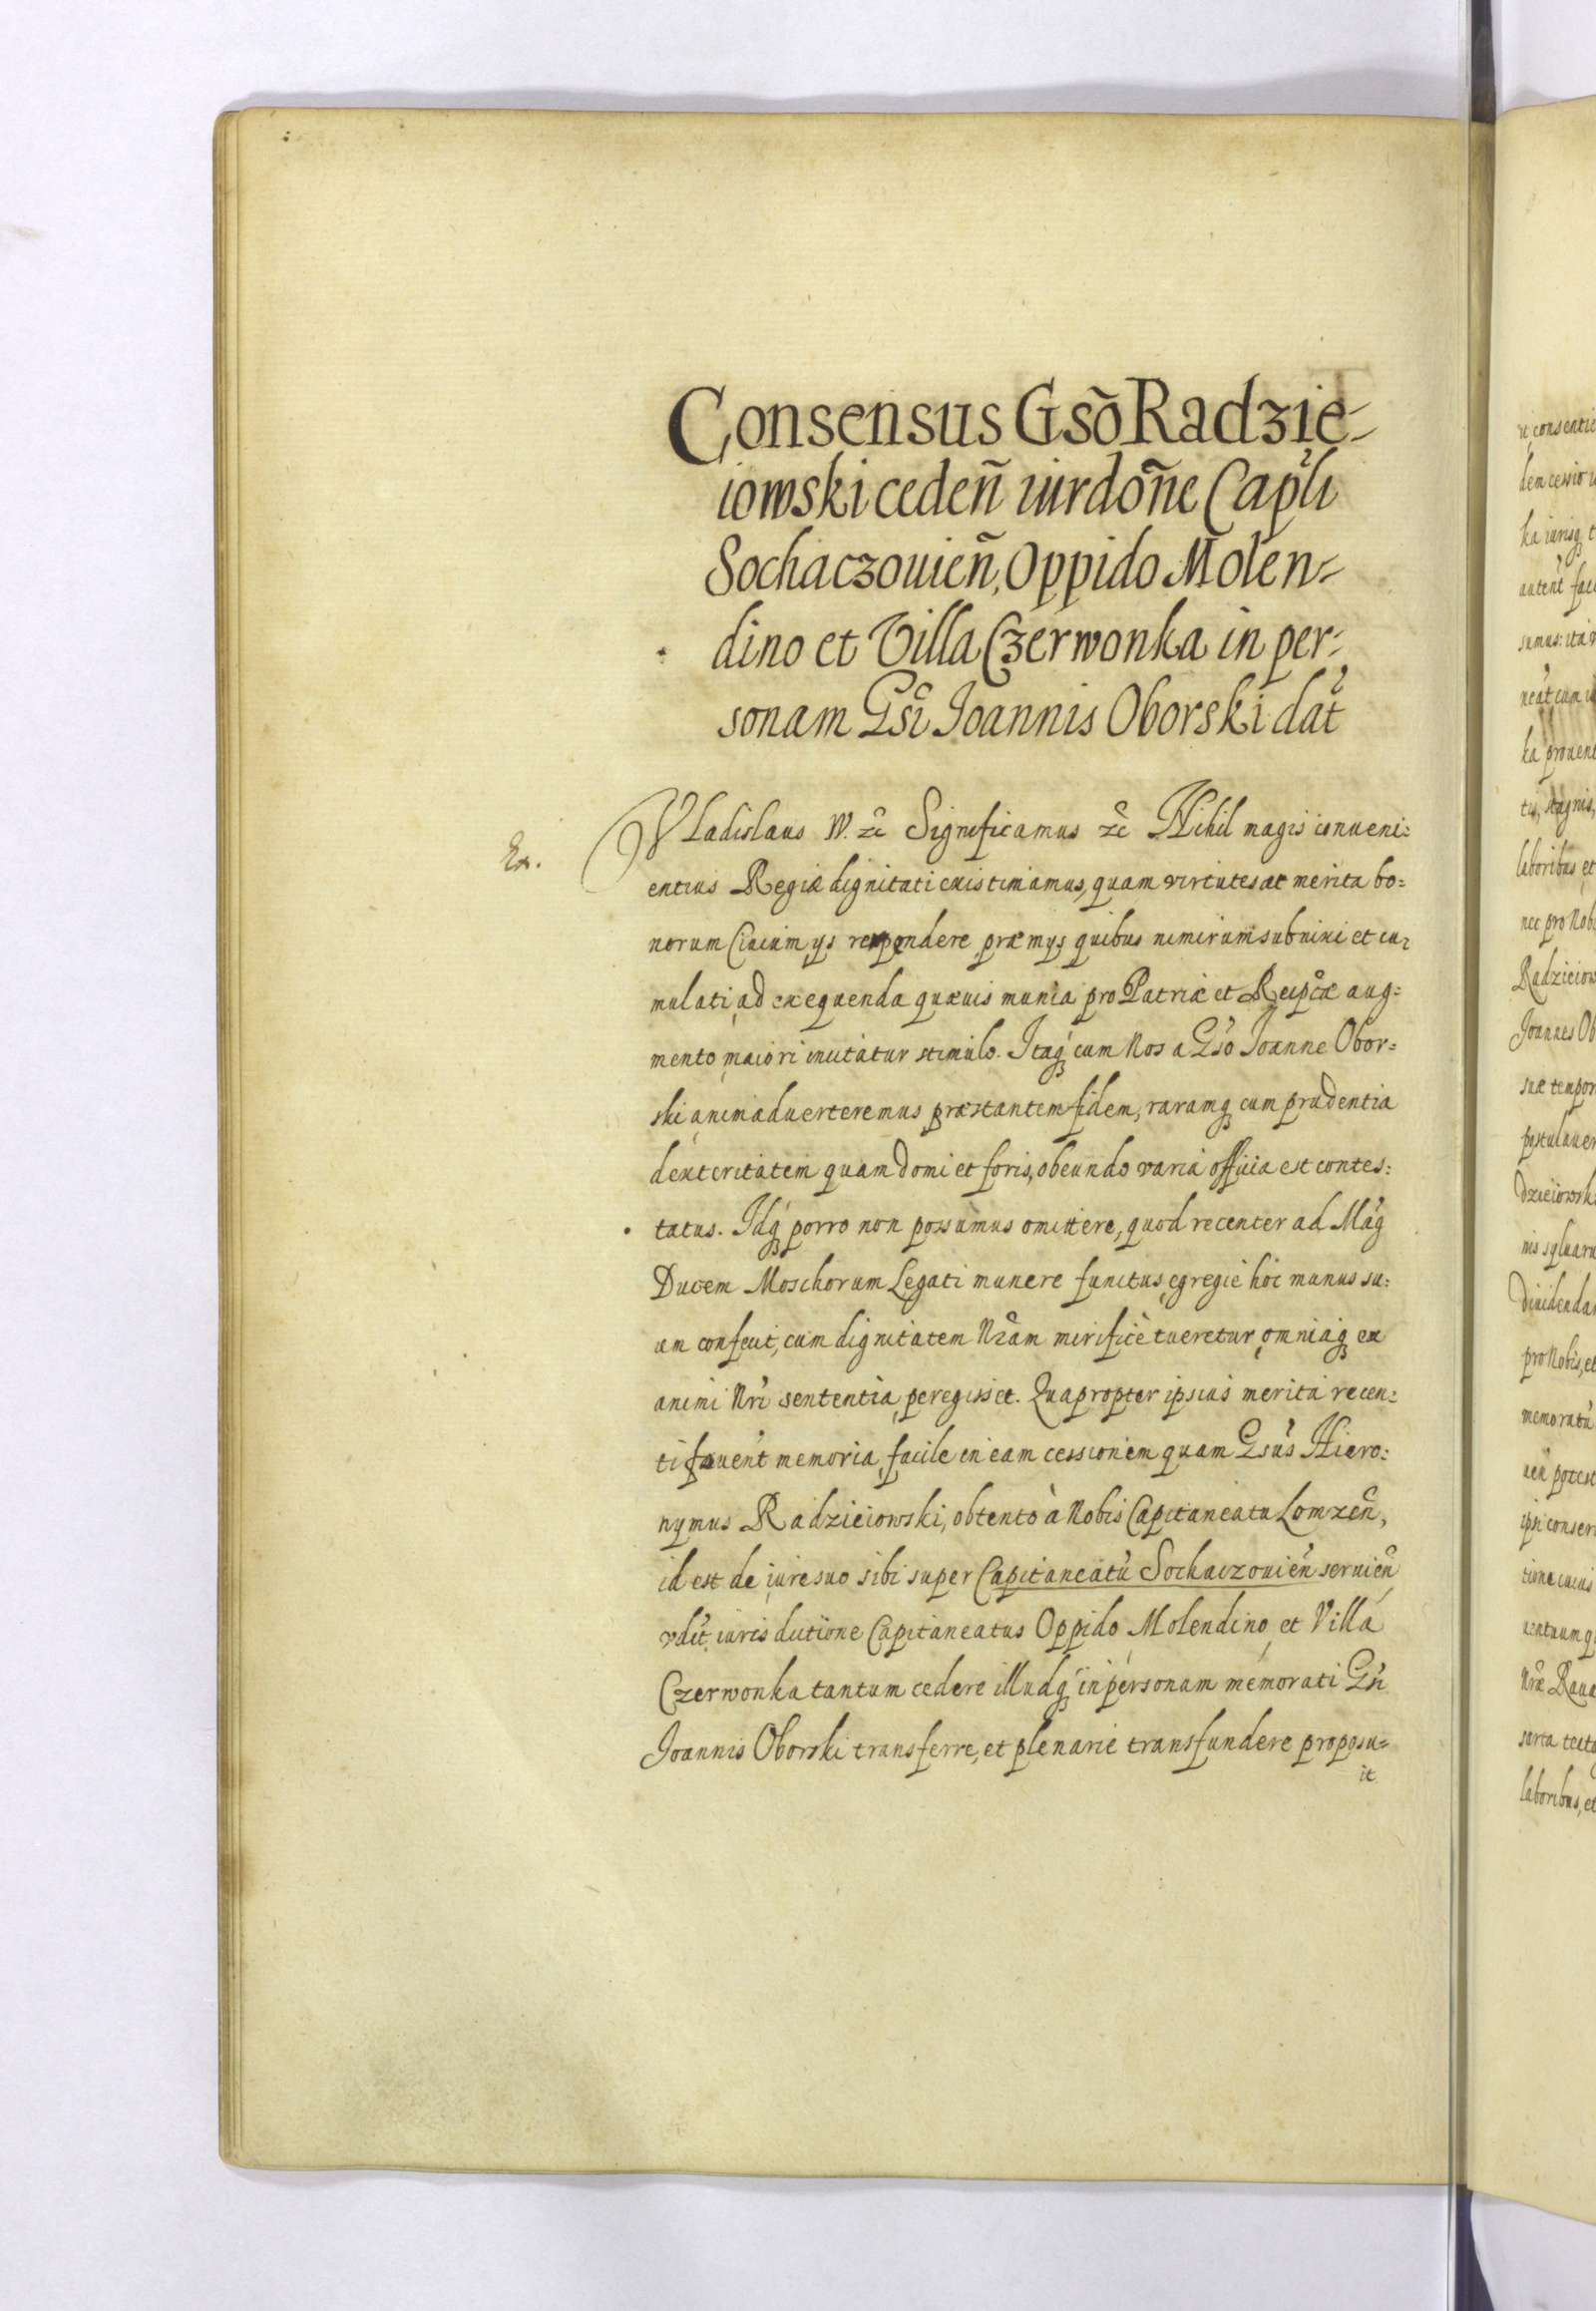 Consensus Gsõ Radzie-
iowski cedeñ iurdoñe Capli
Sochaczouieñ, Oppido Molen=
dino et Villa Czerwonka in per=
sonam Gsi Joannis Oborski dat
Ex.
Vladislaus W. zc Significamus zc Nihil magis conueni=
entius Regiæ dignitati existimamus, quam virtutes ac merita bo=
norum Ciuium ys respondere præmys quibus nimirum subnixi et cu=
mulati, ad exequenda quæuis munia pro Patriæ et Reipcæ aug=
mento maiori incitatur stimulo. Itaq cum Nos a Gso Joanne Obor=
ski animaduerteremus præstantem fidem, raramq cum prudentia
dexteritatem quam domi et foris, obeundo varia officia est contes=
tatus. Idq porro non possumus omittere, quod recenter ad Mag
Ducem Moschorum Legati munere functus, egregie hoc munus su=
um confecit, cum dignitatem Nram mirificè tueretur, omniaq ex
animi Nri sententia peregisset. Quapropter ipsius merita recen=
ti fouent memoria, facile in eam cessionem quam Gsus Hiero=
nymus Radzieiowski, obtento à Nobis Capitaneatu Lomzeñ,
id est de iure suo sibi super Capitaneatu Sochaczouieñ seruieñ
vdlt iuris dictione Capitaneatus Oppido Molendino et Villa
Czerwonka tantum cedere illudq in personam memorati Gsi
Joannis Oborski transferre, et plenarie transfundere proposu=
it